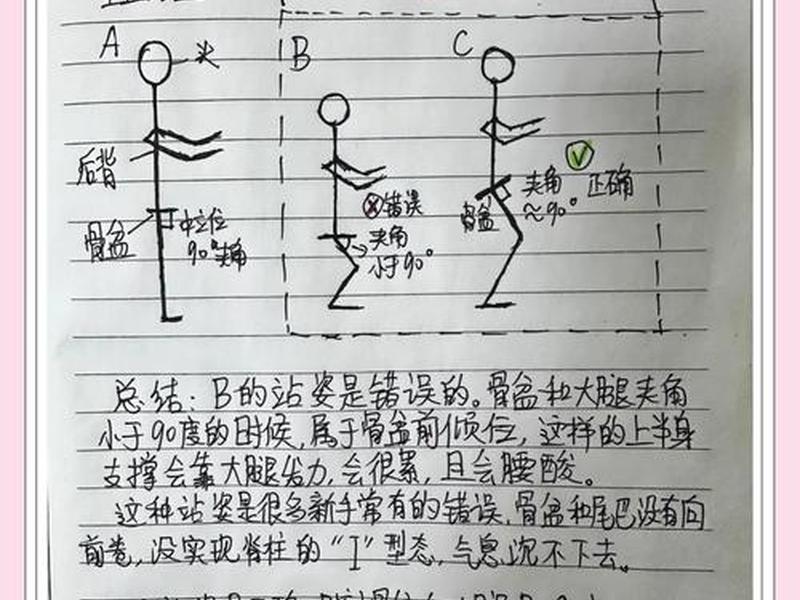 A
头
后背
骨盆
中立位
90°夹角
B
错误
夹角
小于90°
C
骨盆
夹角
≈90°
正确
总结：B的站姿是错误的。骨盆和大腿夹角
小于90度的时候，属于骨盆前倾位，这样的上半身
支撑会靠大腿发力，会很累，且会腰酸。
这种站姿是很多新手常有的错误，骨盆和尾巴没有向
前卷，没实现脊柱的“I”型态，气息沉不下去。